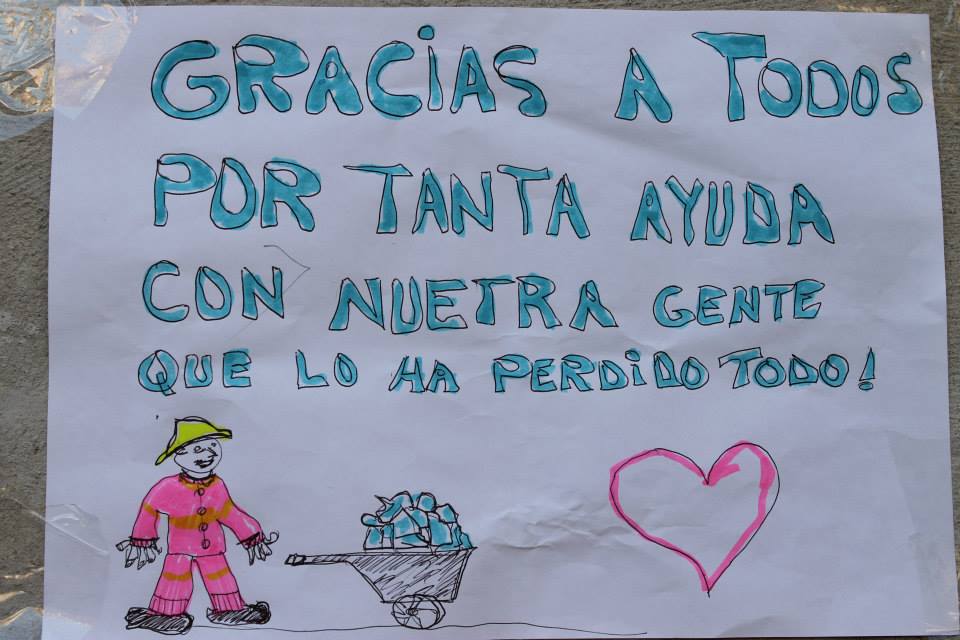 GRACIAS A TODOS
POR TANTA AYUDA
CON NUETRA GENTE
QUE LO HA PERDIDO TODO!